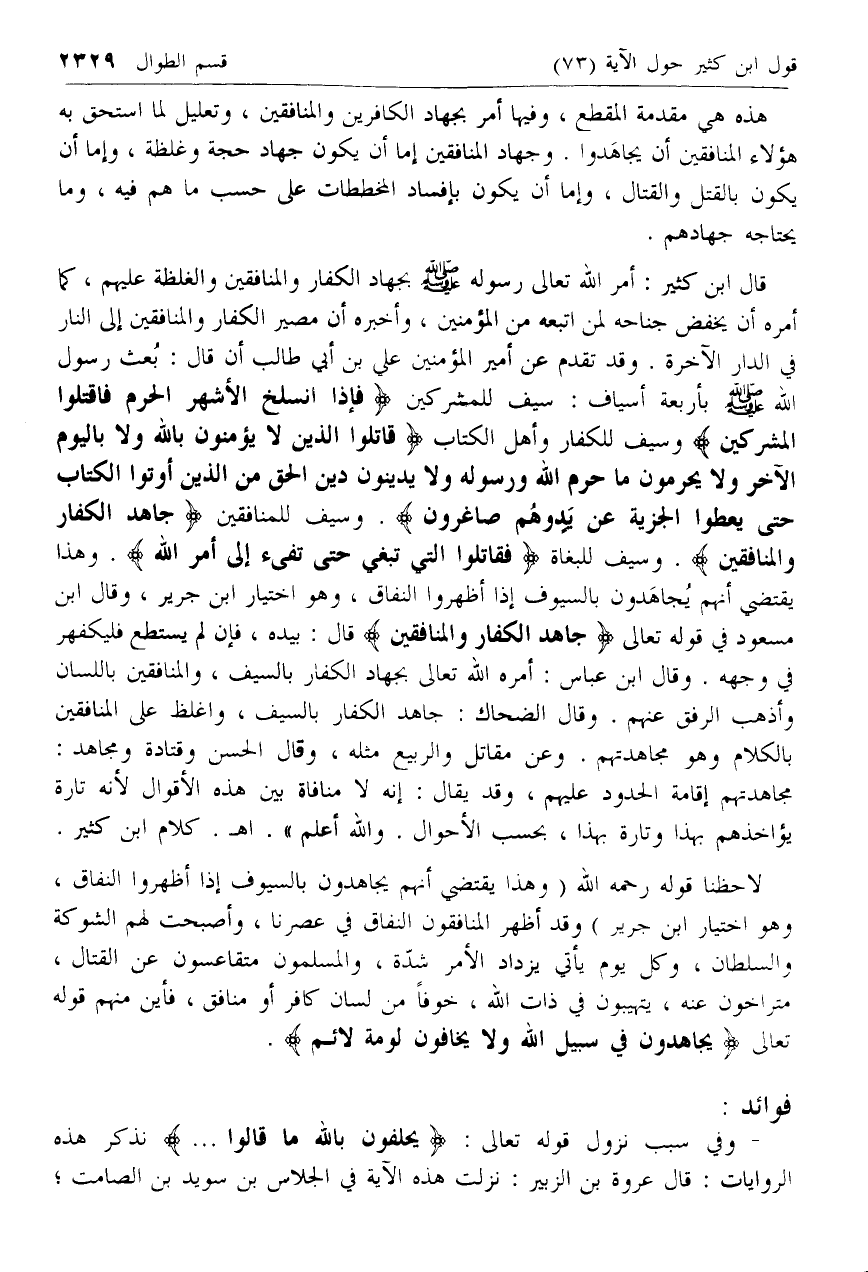 قول ابن كثير حول الآية (٧٣) قسم الطوال ٢٣٢٩
هذه هي مقدمة المقطع ، وفيها أمر بجهاد الكافرين والمنافقين ، وتعليل لما استحق به
هؤلاء المنافقين أن يجاهَدوا . وجهاد المنافقين إما أن يكون جهاد حجة وغلظة ، وإما أن
يكون بالقتل والقتال ، وإما أن يكون بإفساد المخططات على حسب ما هم فيه ، وما
يحتاجه جهادهم .
قال ابن كثير : أمر الله تعالى رسوله ﷺ بجهاد الكفار والمنافقين والغلظة عليهم ، كما
أمره أن يخفض جناحه لمن اتبعه من المؤمنين ، وأخبره أن مصير الكفار والمنافقين إلى النار
في الدار الآخرة . وقد تقدم عن أمير المؤمنين علي بن أبي طالب أن قال : بُعث رسول
الله ﷺ بأربعة أسياف : سيف للمشركين ﴿ فإذا انسلخ الأشهر الحرم فاقتلوا
المشركين ﴾ وسيف للكفار وأهل الكتاب ﴿ قاتلوا الذين لا يؤمنون بالله ولا باليوم
الآخر ولا يحرمون ما حرم الله ورسوله ولا يدينون دين الحق من الذين أوتوا الكتاب
حتى يعطوا الجزية عن يَدِوهُم صاغرون ﴾ . وسيف للمنافقين ﴿ جاهد الكفار
والمنافقين ﴾ . وسيف للبغاة ﴿ فقاتلوا التي تبغي حتى تفيء إلى أمر الله ﴾ . وهذا
يقتضي أنهم يُجاهَدون بالسيوف إذا أظهروا النفاق ، وهو اختيار ابن جرير ، وقال ابن
مسعود في قوله تعالى ﴿ جاهد الكفار والمنافقين ﴾ قال : بيده ، فإن لم يستطع فليكفهر
في وجهه . وقال ابن عباس : أمره الله تعالى بجهاد الكفار بالسيف ، والمنافقين باللسان
وأذهب الرفق عنهم . وقال الضحاك : جاهد الكفار بالسيف ، واغلظ على المنافقين
بالكلام وهو مجاهدتهم . وعن مقاتل والربيع مثله ، وقال الحسن وقتادة ومجاهد :
مجاهدتهم إقامة الحدود عليهم ، وقد يقال : إنه لا منافاة بين هذه الأقوال لأنه تارة
يؤاخذهم بهذا وتارة بهذا ، بحسب الأحوال . والله أعلم » . اهـ . كلام ابن كثير .
لاحظنا قوله رحمه الله ( وهذا يقتضي أنهم يجاهدون بالسيوف إذا أظهروا النفاق ،
وهو اختيار ابن جرير ) وقد أظهر المنافقون النفاق في عصرنا ، وأصبحت لهم الشوكة
والسلطان ، وكل يوم يأتي يزداد الأمر شدّة ، والمسلمون متقاعسون عن القتال ،
متراخون عنه ، يتهيبون في ذات الله ، خوفاً من لسان كافر أو منافق ، فأين منهم قوله
تعالى ﴿ يجاهدون في سبيل الله ولا يخافون لومة لائم ﴾ .
فوائد :
- وفي سبب نزول قوله تعالى : ﴿ يحلفون بالله ما قالوا ... ﴾ نذكر هذه
الروايات : قال عروة بن الزبير : نزلت هذه الآية في الجلاس بن سويد بن الصامت ؛